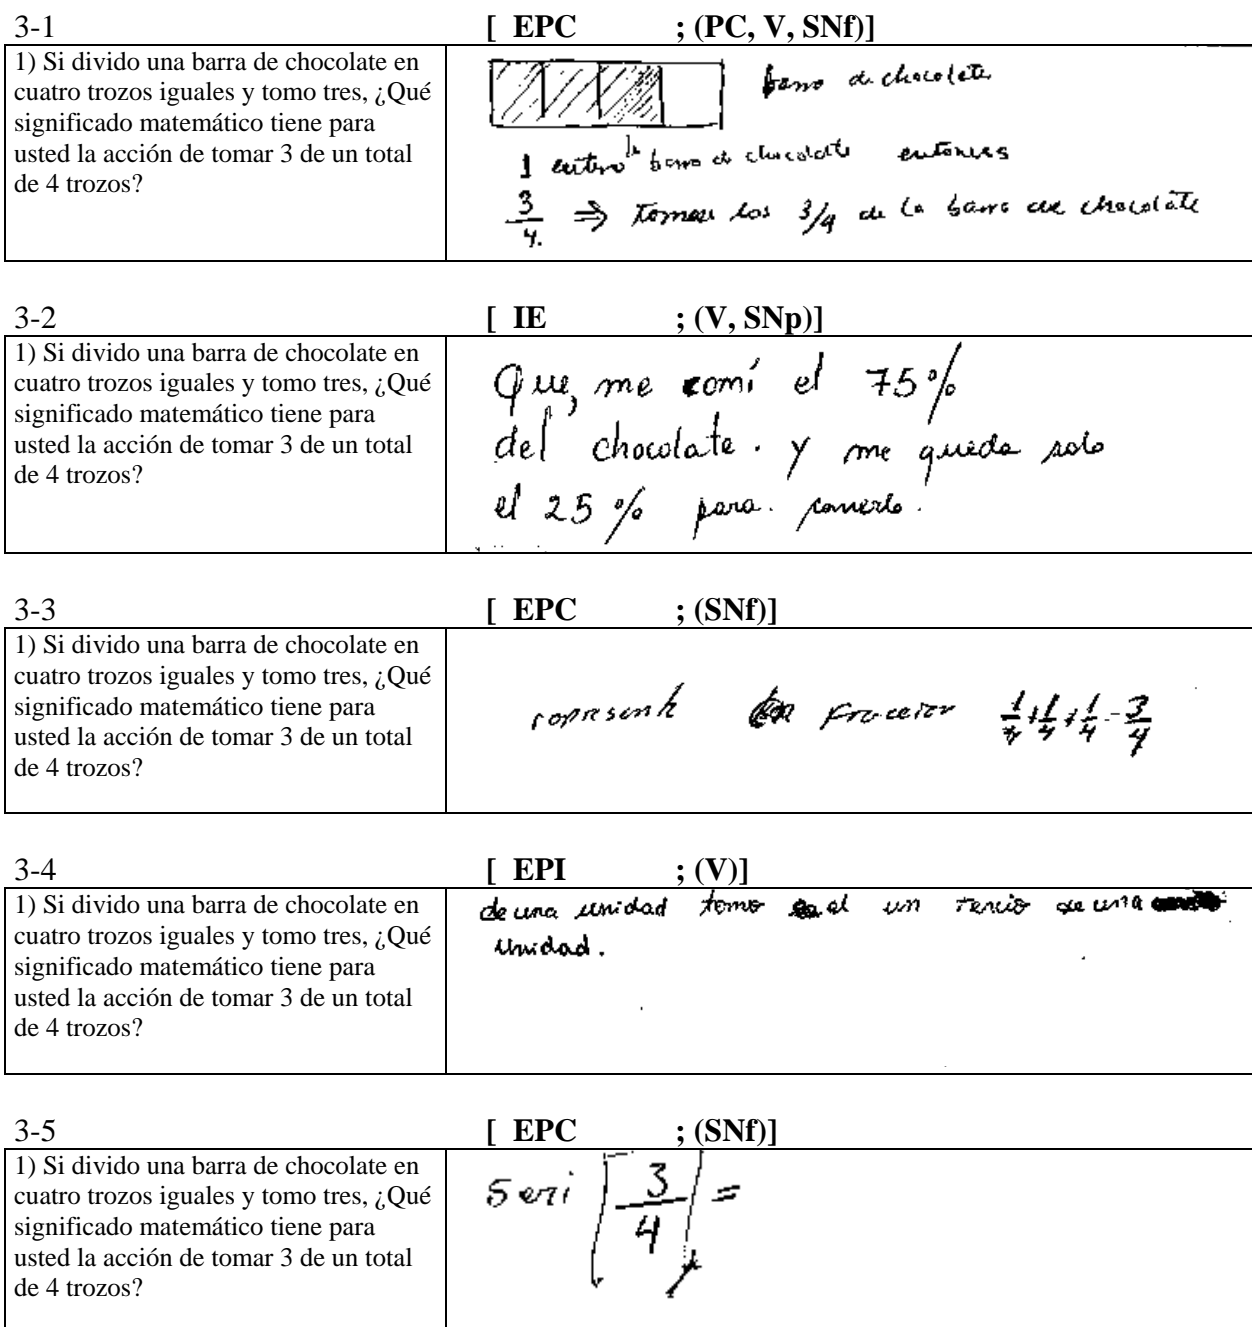 3-1 [ EPC ; (PC, V, SNf)]
1) Si divido una barra de chocolate en
cuatro trozos iguales y tomo tres, ¿Qué
significado matemático tiene para
usted la acción de tomar 3 de un total
de 4 trozos?
barra de chocolate
1 entero la barra de chocolate entonces
3/4. ⇒ tomar los 3/4 de la barra de chocolate
3-2 [ IE ; (V, SNp)]
1) Si divido una barra de chocolate en
cuatro trozos iguales y tomo tres, ¿Qué
significado matemático tiene para
usted la acción de tomar 3 de un total
de 4 trozos?
Que, me comí el 75%
del chocolate. y me queda solo
el 25 % para. comerlo.
3-3 [ EPC ; (SNf)]
1) Si divido una barra de chocolate en
cuatro trozos iguales y tomo tres, ¿Qué
significado matemático tiene para
usted la acción de tomar 3 de un total
de 4 trozos?
fraccion 1/4+1/4+1/4=3/4
3-4 [ EPI ; (V)]
1) Si divido una barra de chocolate en
cuatro trozos iguales y tomo tres, ¿Qué
significado matemático tiene para
usted la acción de tomar 3 de un total
de 4 trozos?
de una unidad tomo el un tercio de una
Unidad.
3-5 [ EPC ; (SNf)]
1) Si divido una barra de chocolate en
cuatro trozos iguales y tomo tres, ¿Qué
significado matemático tiene para
usted la acción de tomar 3 de un total
de 4 trozos?
3/4 =